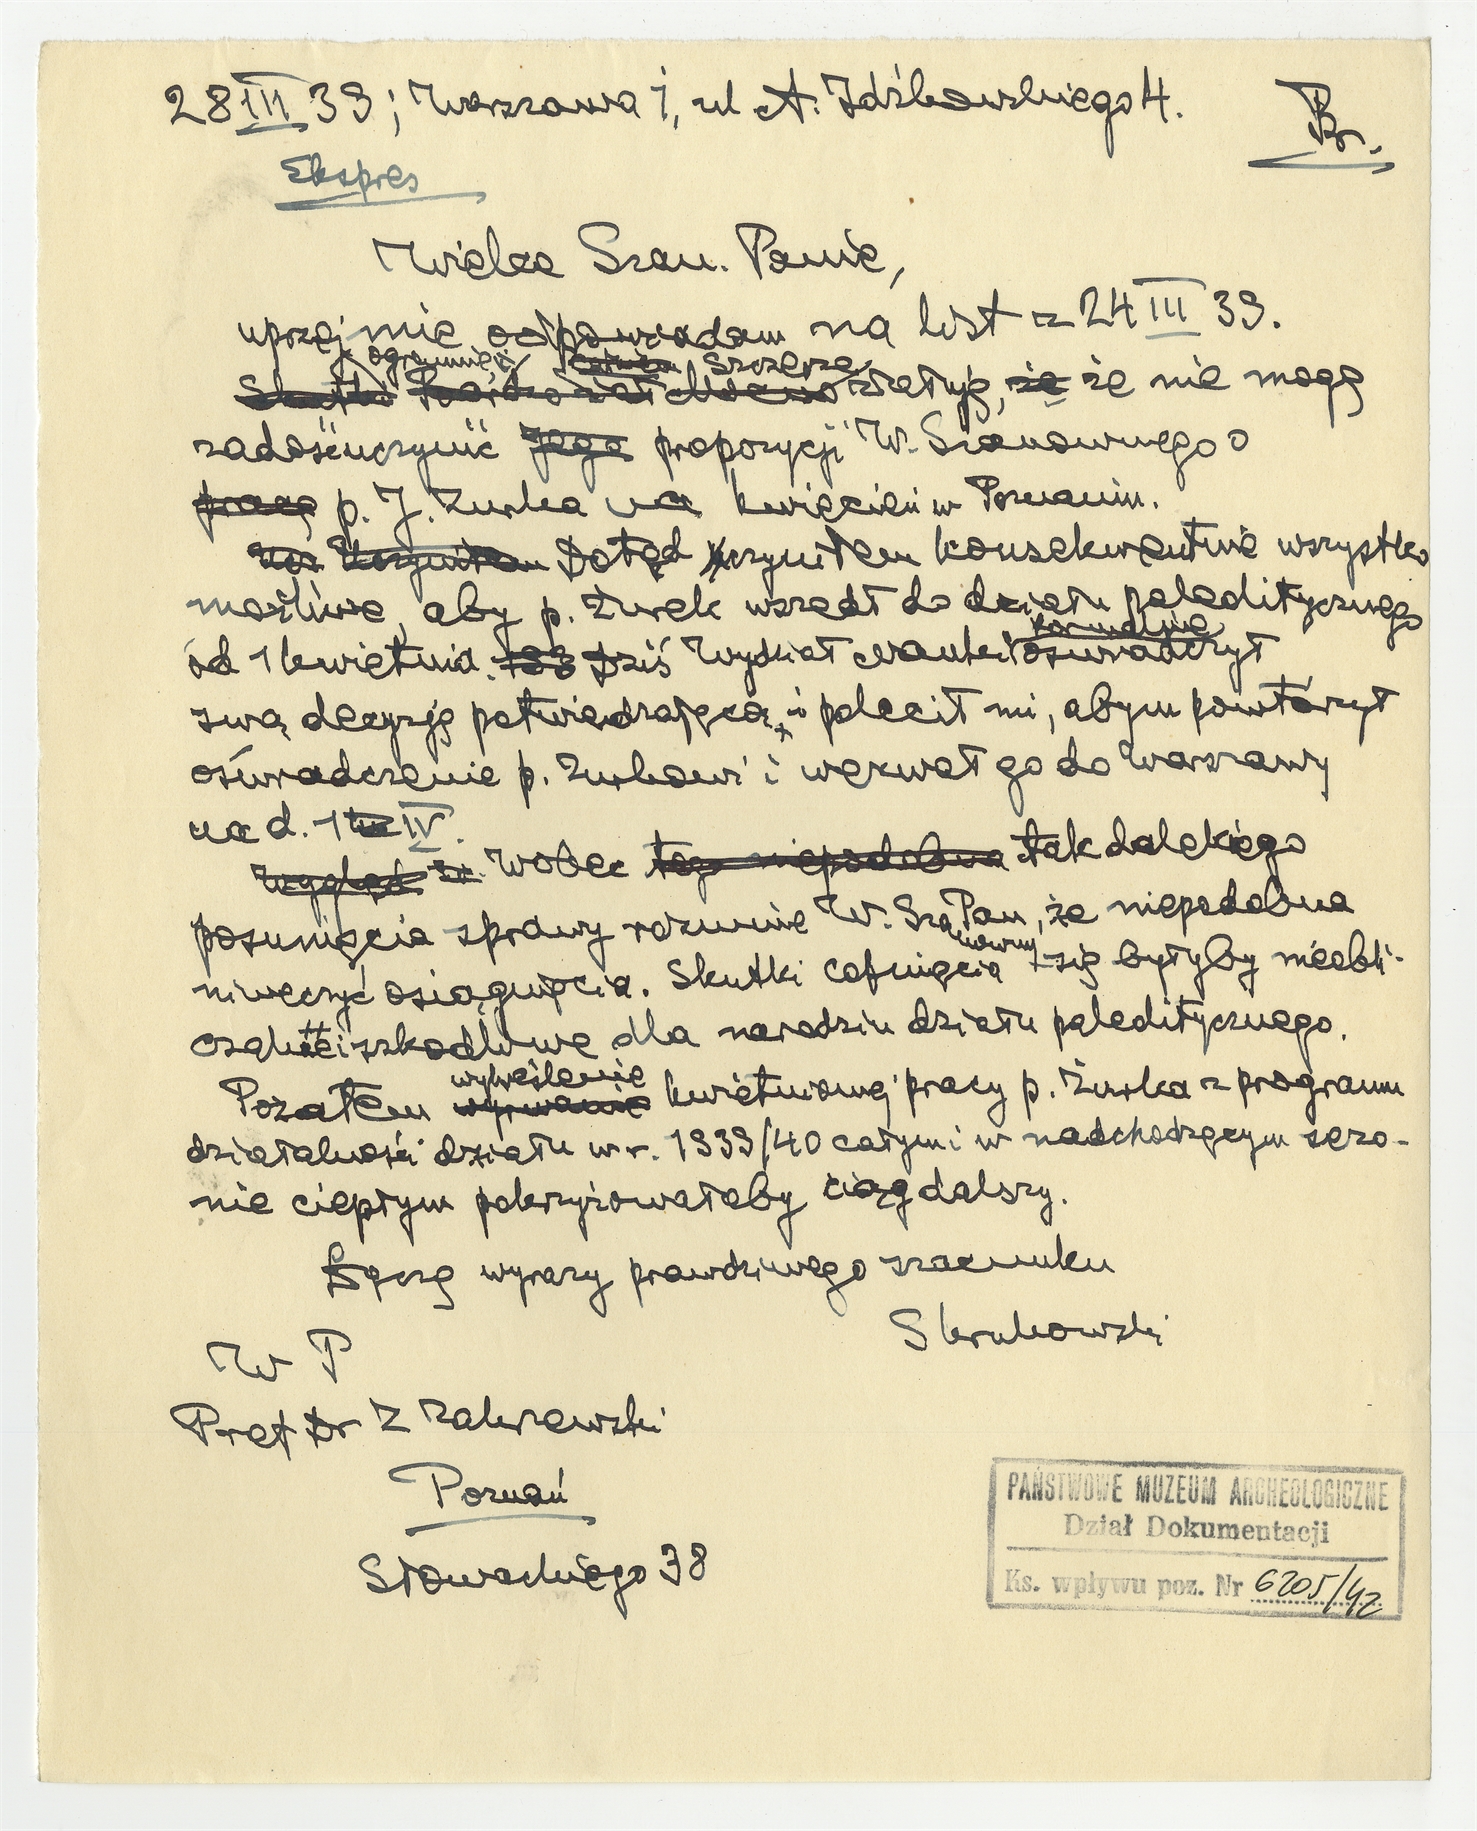 28 III 39; Warszawa 1, ul A. Idźkowskiego 4.
Br.
Ekspres
Wielce Szan. Panie,
uprzejmie odpowiadam na list z 24 III 39.
ogromnie szczerze
Skutki żałuję, że że nie mogę
zadośćuczynić Jego propozycji W. Szanownego o
pracę p. J. Żurka na kwiecień w Poznaniu.
Dotąd uczyniłem konsekwentnie wszystko
możliwe, aby p. Żurek wszedł do działu paleolitycznego
formalnie
od 1 kwietnia. Dziś Wydział Nauki oświadczył
swą decyzję potwierdzającą i polecił mi, abym powtórzył
oświadczenie p. Żurkowi i wezwał go do Warszawy
na d. 1 IV.
Wobec tego niepodobna tak dalekiego
posunięcia sprawy rozumie W. Szanowny Pan, że niepodobna
niweczyć osiągnięcia. Skutki cofnięcia się byłyby nieobli-
czalnie szkodliwe dla narodzin działu paleolitycznego.
wykreślenie
Pozatem wyrwanie kwietniowej pracy p. Żurka z programu
działalności działu w r. 1939/40 całym i w nadchodzącym sezo-
nie ciepłym pokrzyżowałaby ciąg dalszy.
Łączę wyrazy prawdziwego szacunku
SKrukowski
W P
Prof Dr Z Zakrzewski
Poznań
Słowackiego 38
PAŃSTWOWE MUZEUM ARCHEOLOGICZNE
Dział Dokumentacji
Ks. wpływu poz. Nr 6205/42